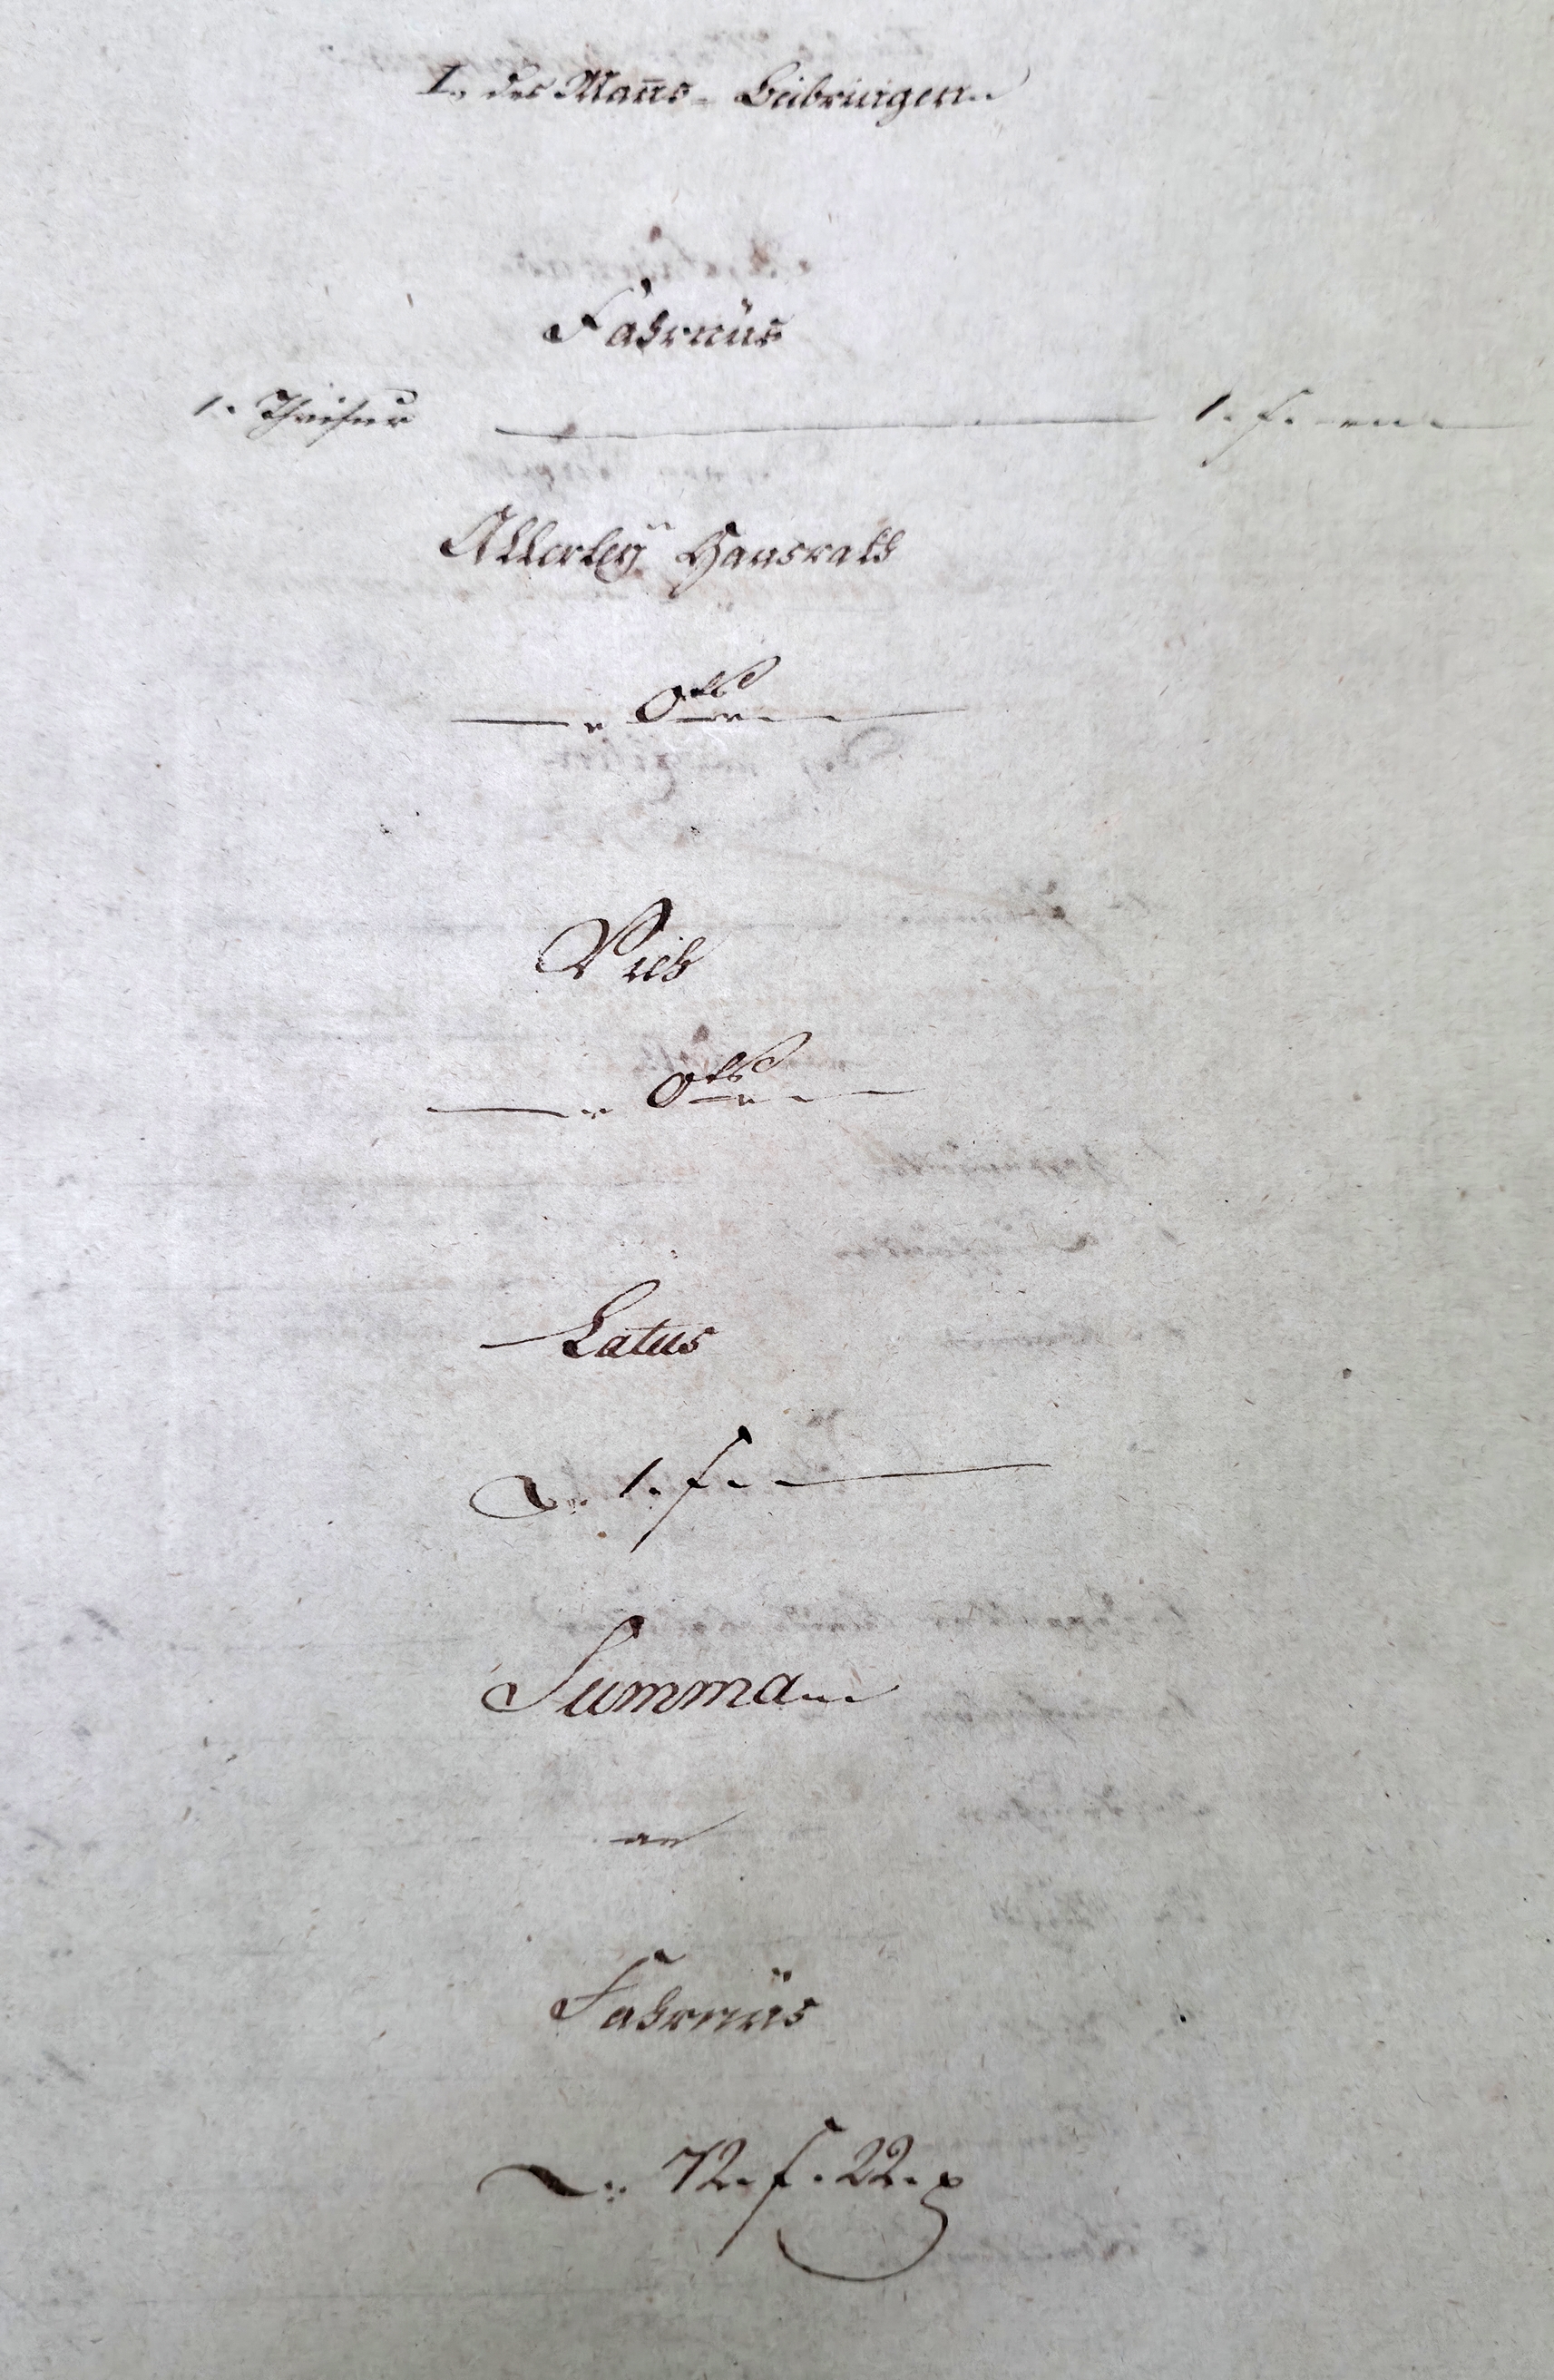 I., des Mañs - Beibringen.
Fahrnüs
1. Thrisur 1. f. —
Allerleÿ Hausrath
0.
Vieh
0.
Latus
1. f. —
Summa
an
Fahrnüs
72. f. 22. x